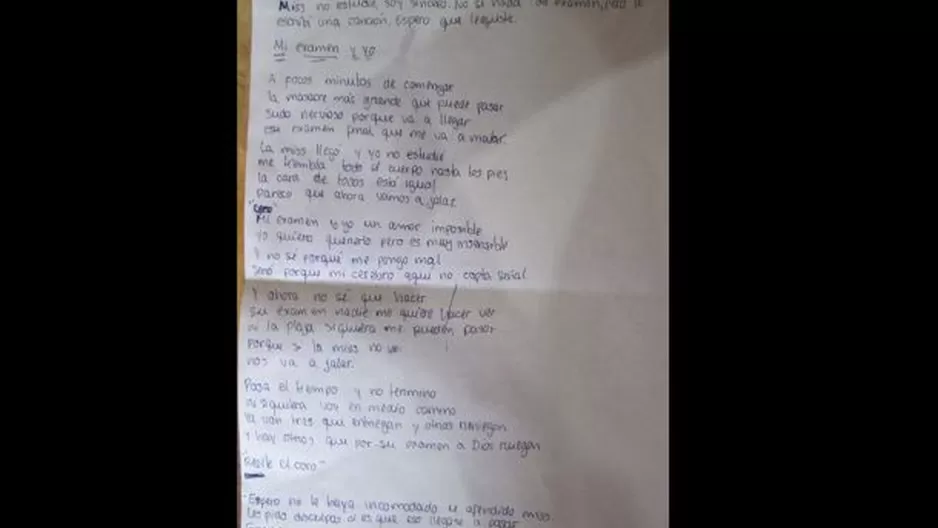 Miss no estudié, soy sincero. No sé nada de examen, pero le
escribí una canción. Espero que legible.
Mi examen y yo
A pocos minutos de comenzar
la masacre más grande que puede pasar
sudo nervioso porque va a llegar
ese examen final que me va a matar.
La miss llego y yo no estudié
me tiembla todo el cuerpo hasta los pies
la cara de todos está igual
parece que ahora vamos a jalar.
"coro"
Mi examen y yo un amor imposible
yo quiero quererlo pero es muy insensible
Y no sé porqué me pongo mal
Será porque mi cerebro aquí no capta señal
Y ahora no sé que hacer
su examen nadie me quiere hacer ver
ni la plaja siquiera me pueden pasar
Porque si la miss no ve
nos va a jalar.
Pasa el tiempo y no termino
ni siquiera voy en medio camino
ya van tres que entregan y otros reniegan
Y hay otros que por su examen a Dios ruegan
"Repite el coro"
"Espero no le haya incomodado u ofendido miss.
Les pido disculpas si es que eso llegase a pasar